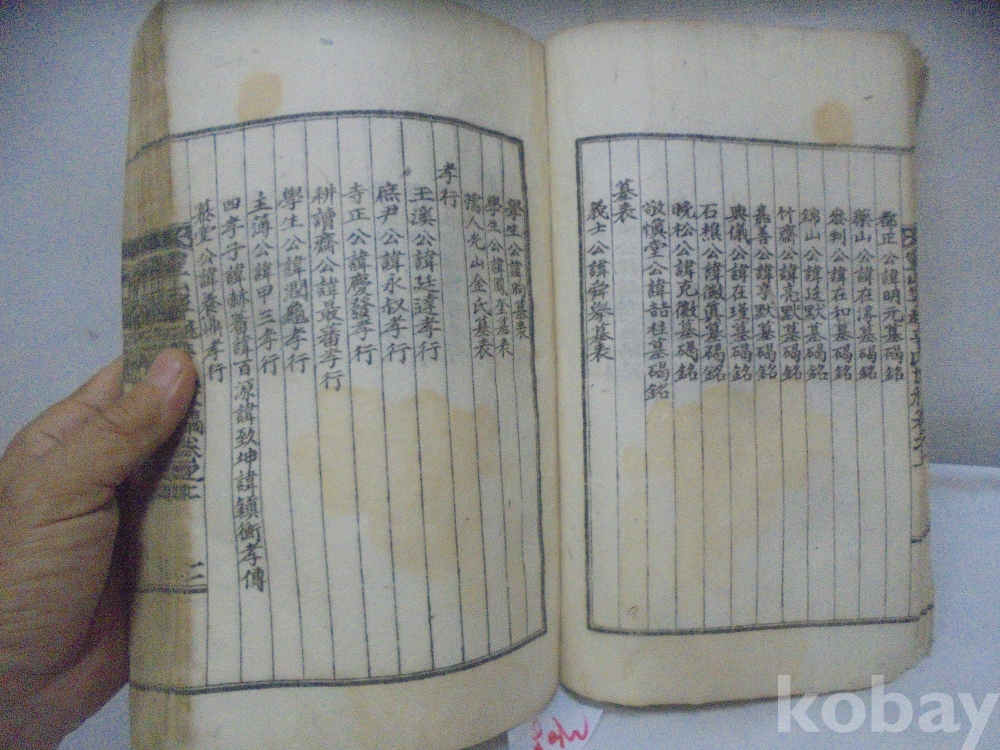 都正公諱明元墓碣銘
藥山公諱在淳墓碣銘
參判公諱在和墓碣銘
錦山公諱廷默墓碣銘
竹齋公諱亮默墓碣銘
嘉善公諱亨默墓碣銘
典儀公諱在瑾墓碣銘
石樵公諱徽眞墓碣銘
晚松公諱克徽墓碣銘
敬慎堂公諱喆柱墓碣銘
墓表
義士公諱舜擧墓表
學生公諱昫墓表
學生公諱 墓表
孺人光山金氏墓表
孝行
玉溪公諱廷達孝行
庶尹公諱永叔孝行
寺正公諱慶發孝行
耕讀齋公諱最蕃孝行
學生公諱潤龜孝行
主簿公諱甲三孝行
四孝子諱 蕃諱百源諱致坤諱鎭衡孝傳
慕堂公諱 鼎孝行
二
kobay